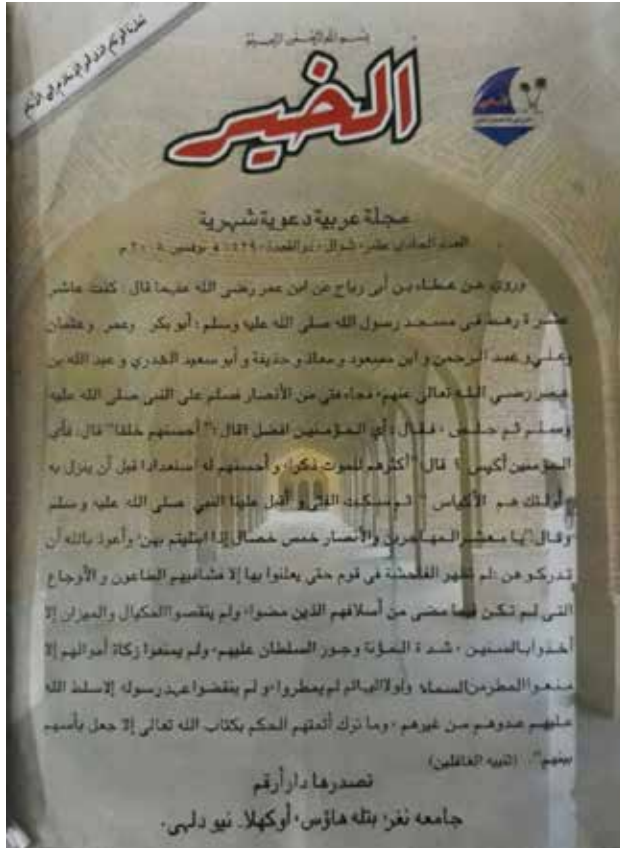 بسم الله الرحمن الرحيم
الخير
مجلة عربية دعوية شهرية
العدد الحادي عشر، شوال، ذوالقعدة، ١٤٢٩ھ نوفمبر ٢٠٠٨م
وروي عن عطاء بن أبى رباح عن ابن عمر رضى الله عنهما قال: كنت عاشر
عشرة رهط فى مسجد رسول الله صلى الله عليه وسلم: أبو بكر وعمر وعثمان
وعلي و عبد الرحمن و ابن مسعود و معاذ و حذيفة و أبو سعيد الخدري و عبد الله بن
عمر رضى الله تعالى عنهم، فجاء فتى من الأنصار فسلم على النبى صلى الله عليه
وسلم ثم جلس، فقال: أي المؤمنين افضل؟ قال: "أحسنهم خلقا" قال: فأي
المؤمنين أكيس؟ قال: "أكثرهم للموت ذكرا، و أحسنهم له استعدادا قبل أن ينزل به
أولئك هم الأكياس" ثم سكت الفتى و أقبل علينا النبي صلى الله عليه وسلم
وقال: "يا معشر المهاجرين والأنصار خمس خصال إذا ابتليتم بهن، وأعوذ بالله أن
تدركوهن: لم تظهر الفاحشة فى قوم حتى يعلنوا بها إلا فشا فيهم الطاعون و الأوجاع
التى لم تكن فيما مضى من أسلافهم الذين مضوا، ولم ينقصوا المكيال والميزان إلا
أخذوا بالسنين، شدة المؤنة وجور السلطان عليهم، ولم يمنعوا زكاة أموالهم إلا
منعوا المطر من السماء ولولا البهائم لم يمطروا، و لم ينقضوا عهد رسوله إلا سلط الله
عليهم عدوهم من غيرهم، وما ترك أئمتهم الحكم بكتاب الله تعالى إلا جعل بأسهم
بينهم". (تنبيه الغافلين)
تصدرها دار أرقم
جامعه نغر، بتله هاؤس، أوكهلا۔ نيو دلهى۔